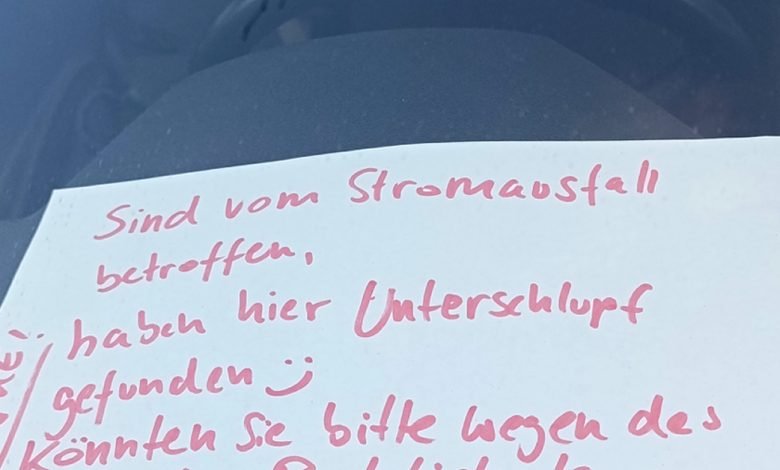 Sind vom Stromausfall
betroffen,
haben hier Unterschlupf
gefunden :)
Könnten Sie bitte wegen des